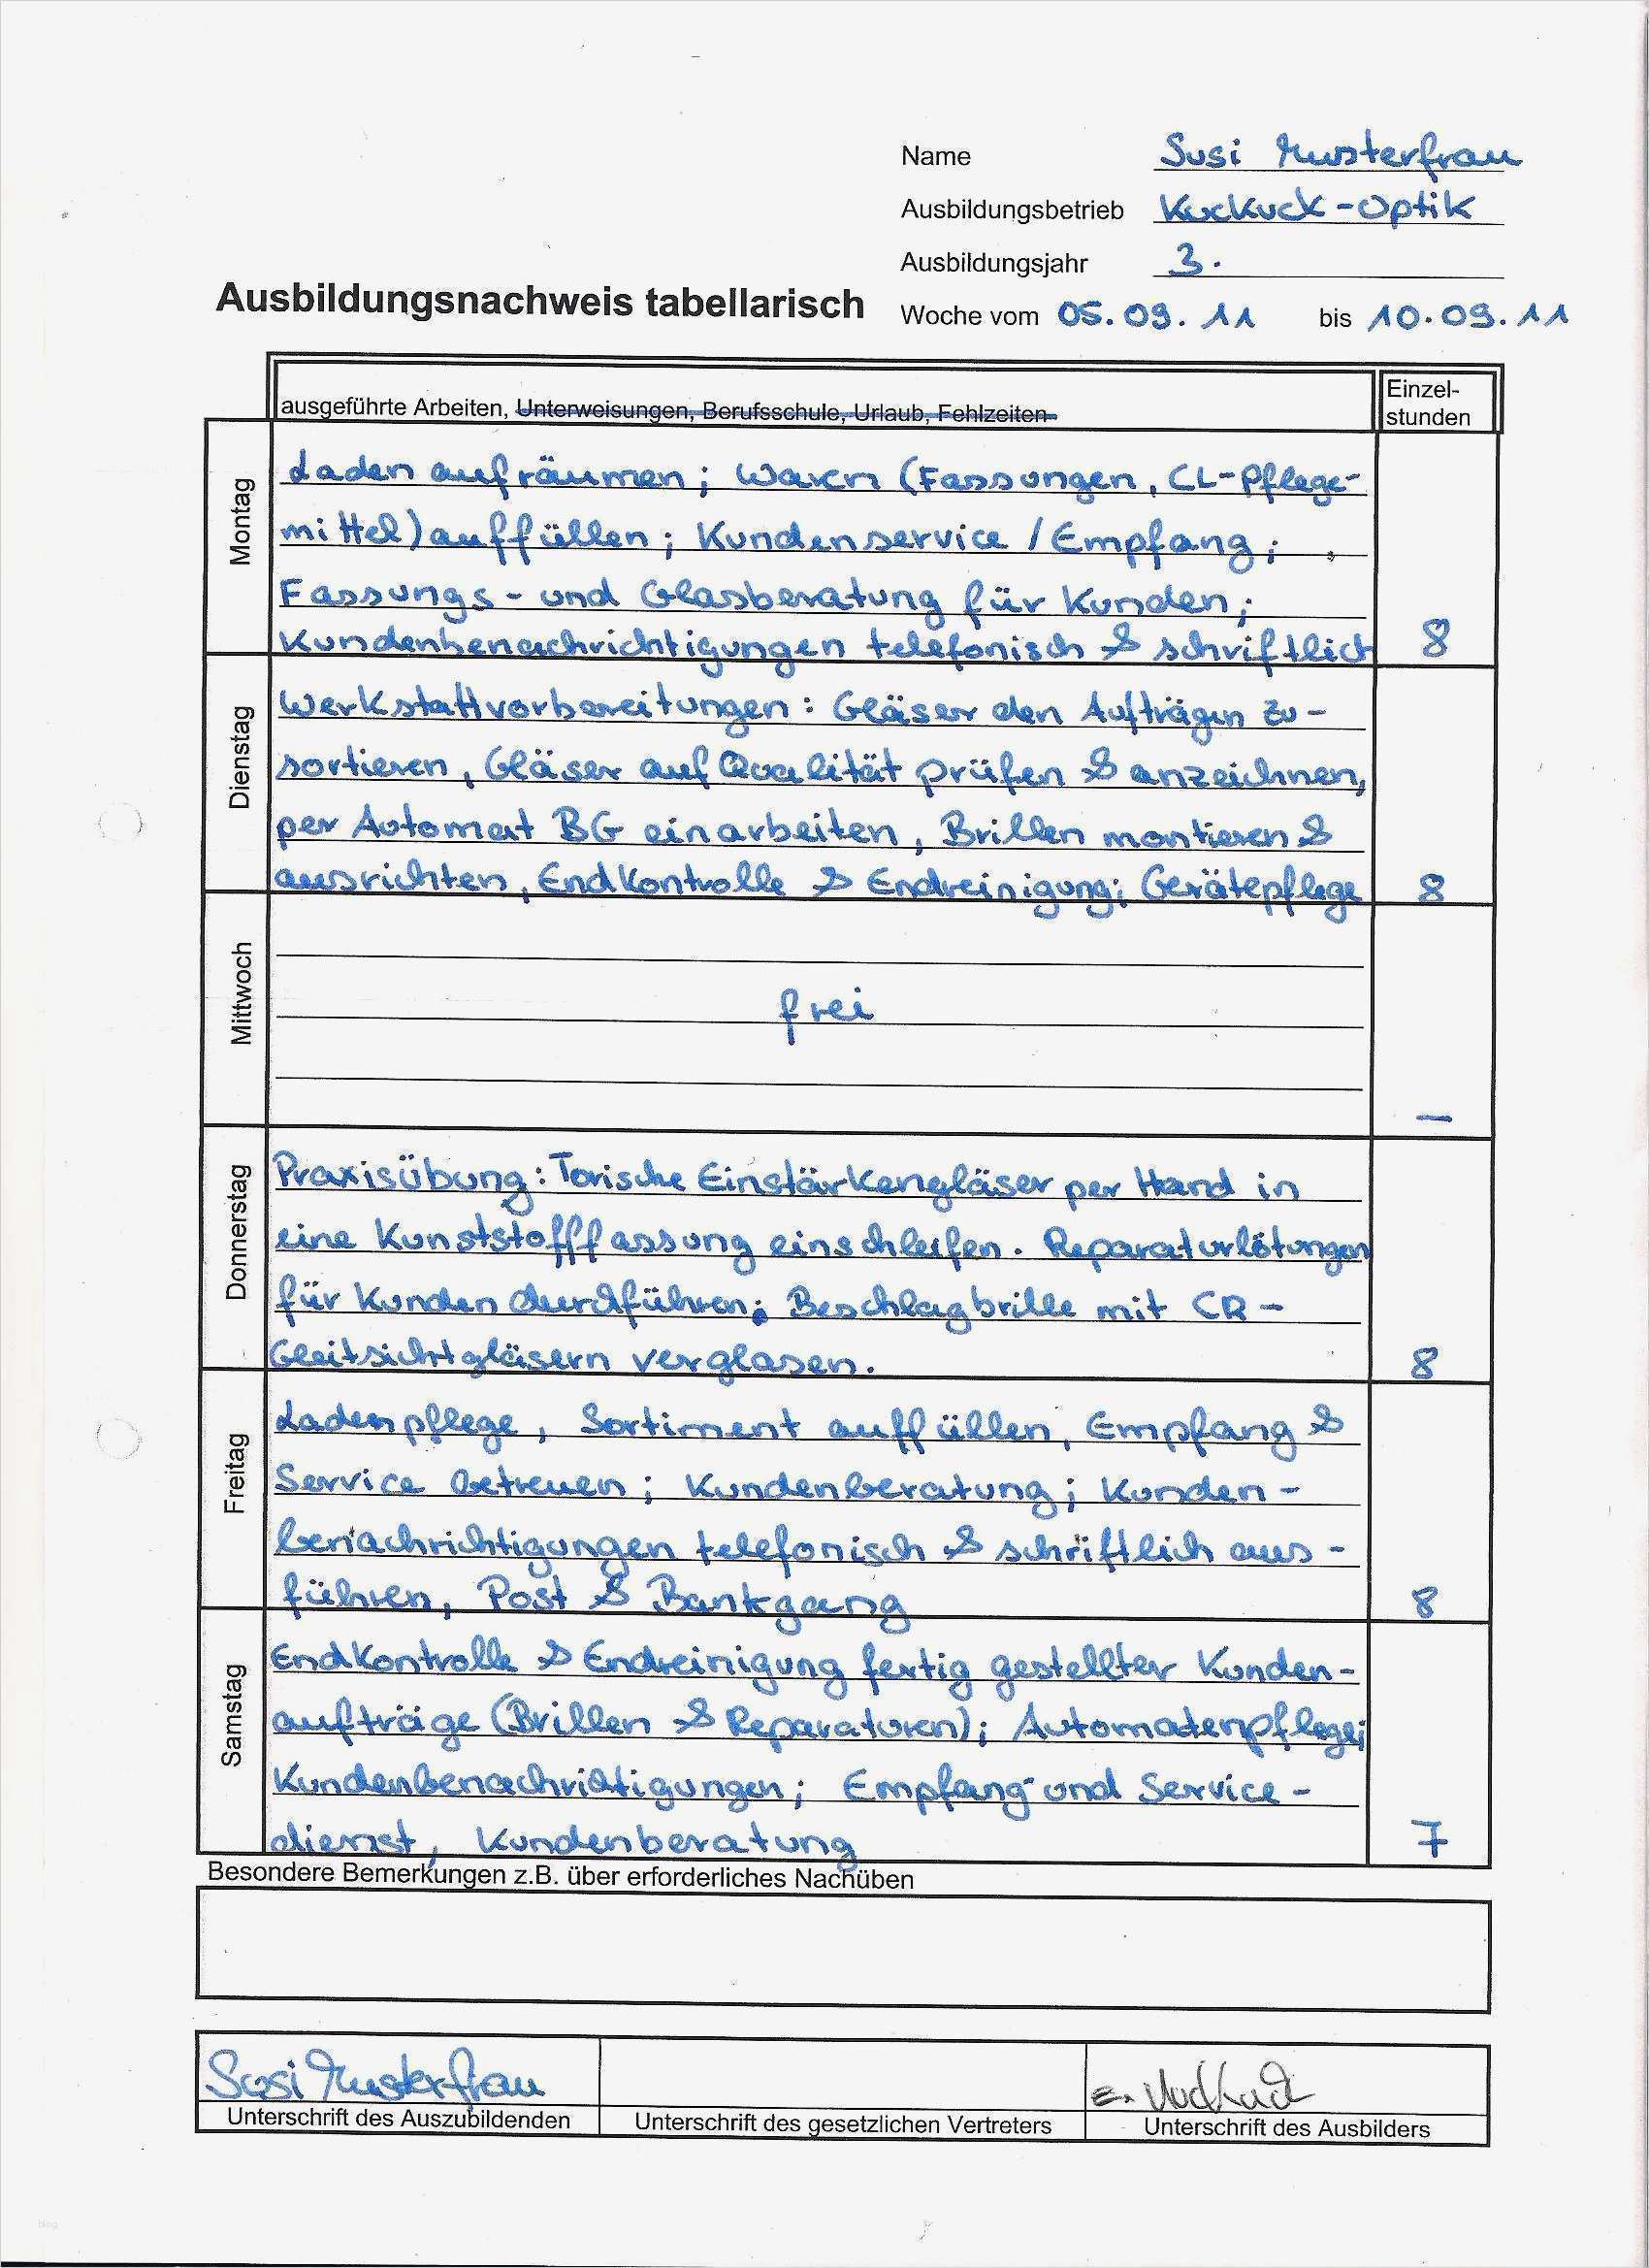 Name Susi Musterfrau
Ausbildungsbetrieb Kuckuck-Optik
Ausbildungsjahr 3.
Ausbildungsnachweis tabellarisch Woche vom 05.09.11 bis 10.09.11
ausgeführte Arbeiten, Unterweisungen, Berufsschule, Urlaub, Fehlzeiten
Einzel-
stunden
Montag
Laden aufräumen; Waren (Fassungen, CL-Pflege-
mittel) auffüllen; Kundenservice / Empfang;
Fassungs- und Glasberatung für Kunden;
Kundenbenachrichtigungen telefonisch & schriftlich 8
Dienstag
Werkstattvorbereitungen: Gläser den Aufträgen zu-
sortieren, Gläser auf Qualität prüfen & anzeichnen,
per Automat BG einarbeiten, Brillen montieren &
ausrichten, Endkontrolle & Endreinigung; Gerätepflege 8
Mittwoch
frei
—
Donnerstag
Praxisübung: Torische Einstärkengläser per Hand in
eine Kunststofffassung einschleifen. Reparaturlötungen
für Kunden durchführen; Beschlagbrille mit CR-
Gleitsichtgläsern verglasen. 8
Freitag
Ladenpflege, Sortiment auffüllen, Empfang &
Service betreuen; Kundenberatung; Kunden-
benachrichtigungen telefonisch & schriftlich aus-
führen, Post & Bankgang 8
Samstag
Endkontrolle & Endreinigung fertig gestellter Kunden-
aufträge (Brillen & Reparaturen); Automatenpflege;
Kundenbenachrichtigungen; Empfang und Service-
dienst, Kundenberatung 7
Besondere Bemerkungen z.B. über erforderliches Nachüben
Susi Musterfrau
Unterschrift des Auszubildenden Unterschrift des gesetzlichen Vertreters Unterschrift des Ausbilders